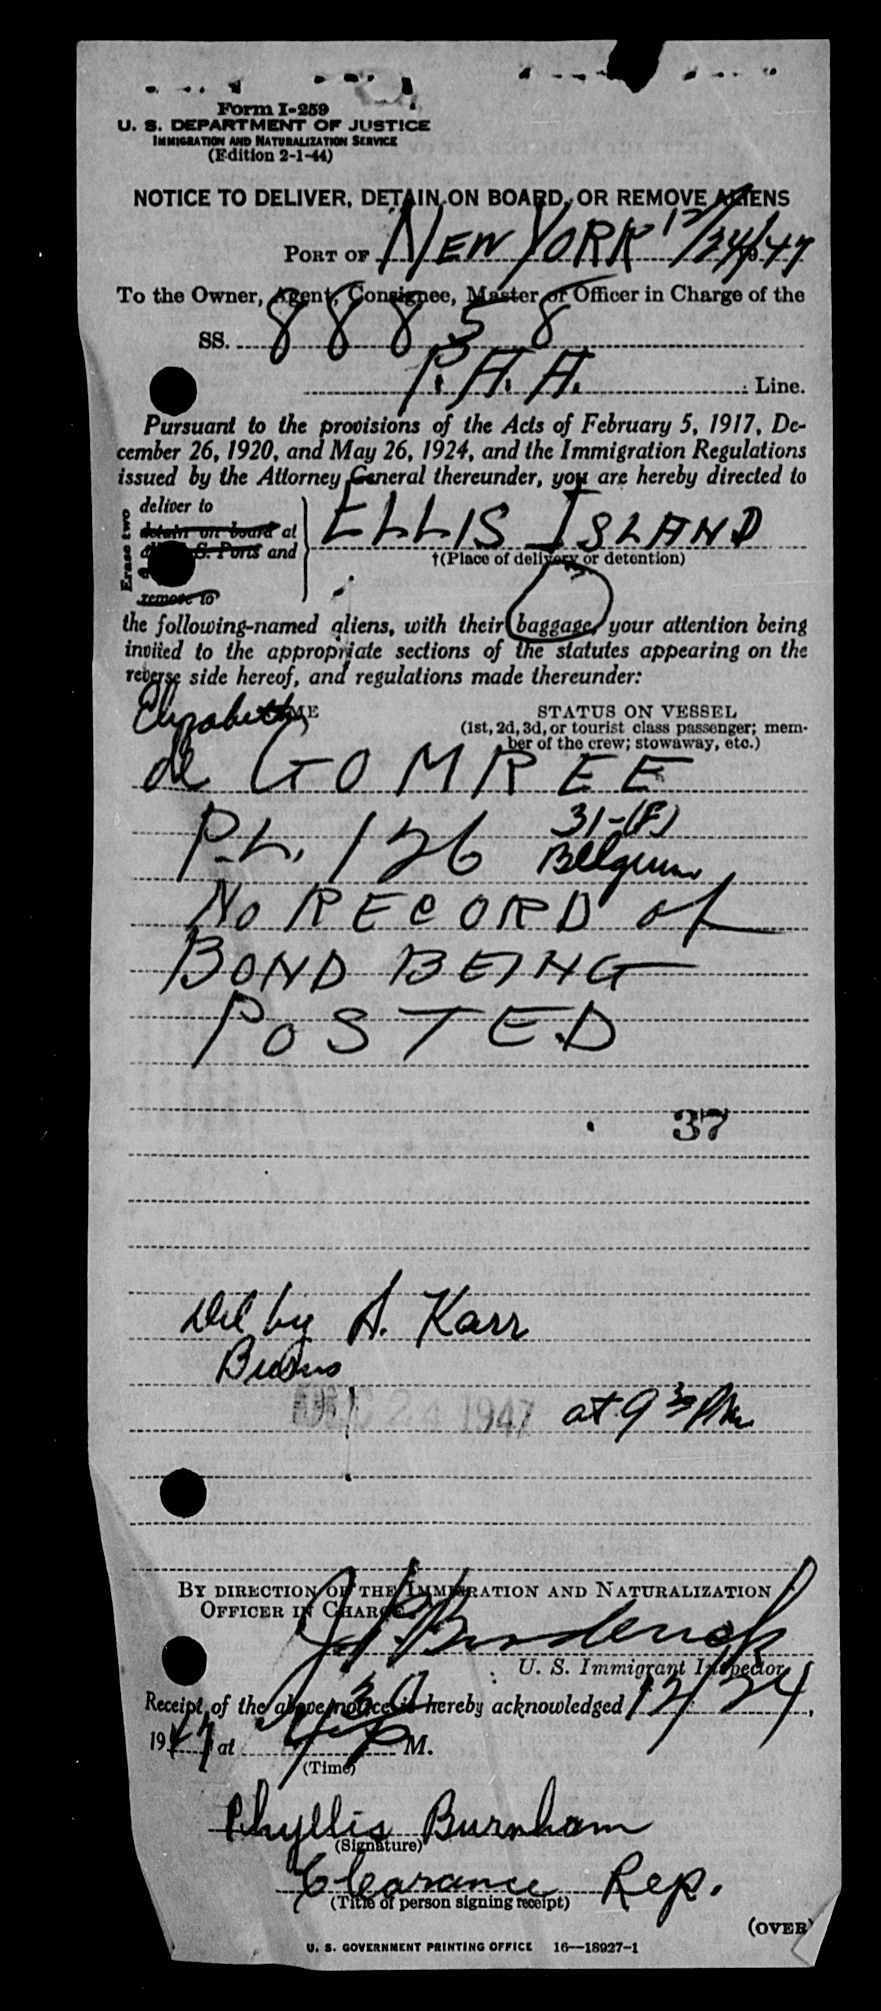 Form I-259
U. S. DEPARTMENT OF JUSTICE
IMMIGRATION AND NATURALIZATION SERVICE
(Edition 2-1-44)
NOTICE TO DELIVER, DETAIN ON BOARD, OR REMOVE ALIENS
PORT OF NEW YORK 12/24/47
To the Owner, Agent, Consignee, Master or Officer in Charge of the
SS. 88858
P.A.A. Line.
Pursuant to the provisions of the Acts of February 5, 1917, De-
cember 26, 1920, and May 26, 1924, and the Immigration Regulations
issued by the Attorney General thereunder, you are hereby directed to
Erase two
deliver to
detain on board at ELLIS ISLAND
S. Ports and †(Place of delivery or detention)
remove to
the following-named aliens, with their baggage, your attention being
invited to the appropriate sections of the statutes appearing on the
reverse side hereof, and regulations made thereunder:
Elizabeth NAME STATUS ON VESSEL
(1st, 2d, 3d, or tourist class passenger; mem-
ber of the crew; stowaway, etc.)
de GOMREE
P.L. 126 31-(F)
Belgium
NO RECORD of
BOND BEING
POSTED
37
Del by A. Karr
Burns
DEC 24 1947 at 9 30 PM
BY DIRECTION OF THE IMMIGRATION AND NATURALIZATION
OFFICER IN CHARGE.
Broderick
U. S. Immigrant Inspector
Receipt of the above notice is hereby acknowledged 12/24,
1947 at 4 30 P M.
(Time)
Phyllis Burnham
(Signature)
Clearance Rep.
(Title of person signing receipt)
(OVER)
U. S. GOVERNMENT PRINTING OFFICE 16—18927-1